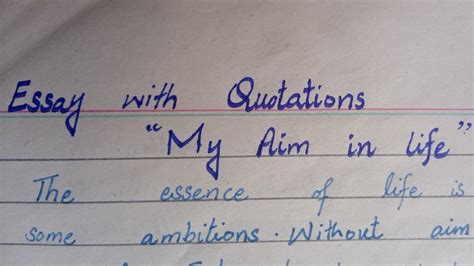 Essay with Quotations
"My Aim in life"
The essence of life is
some ambitions. Without aim